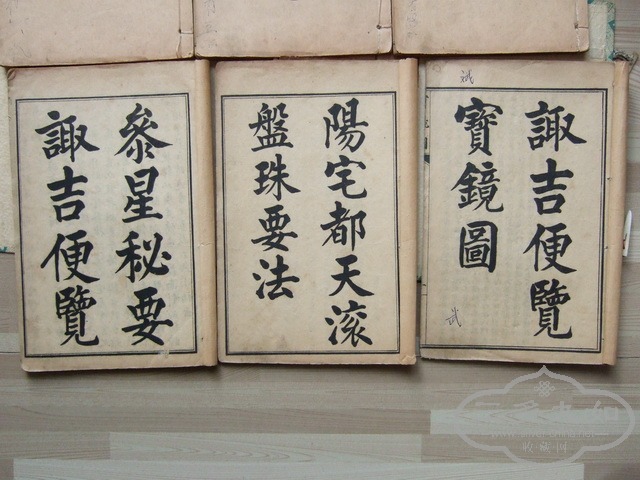 諏吉便覽
寶鏡圖
武
陽宅都天滾
盤珠要法
參星秘要
諏吉便覽